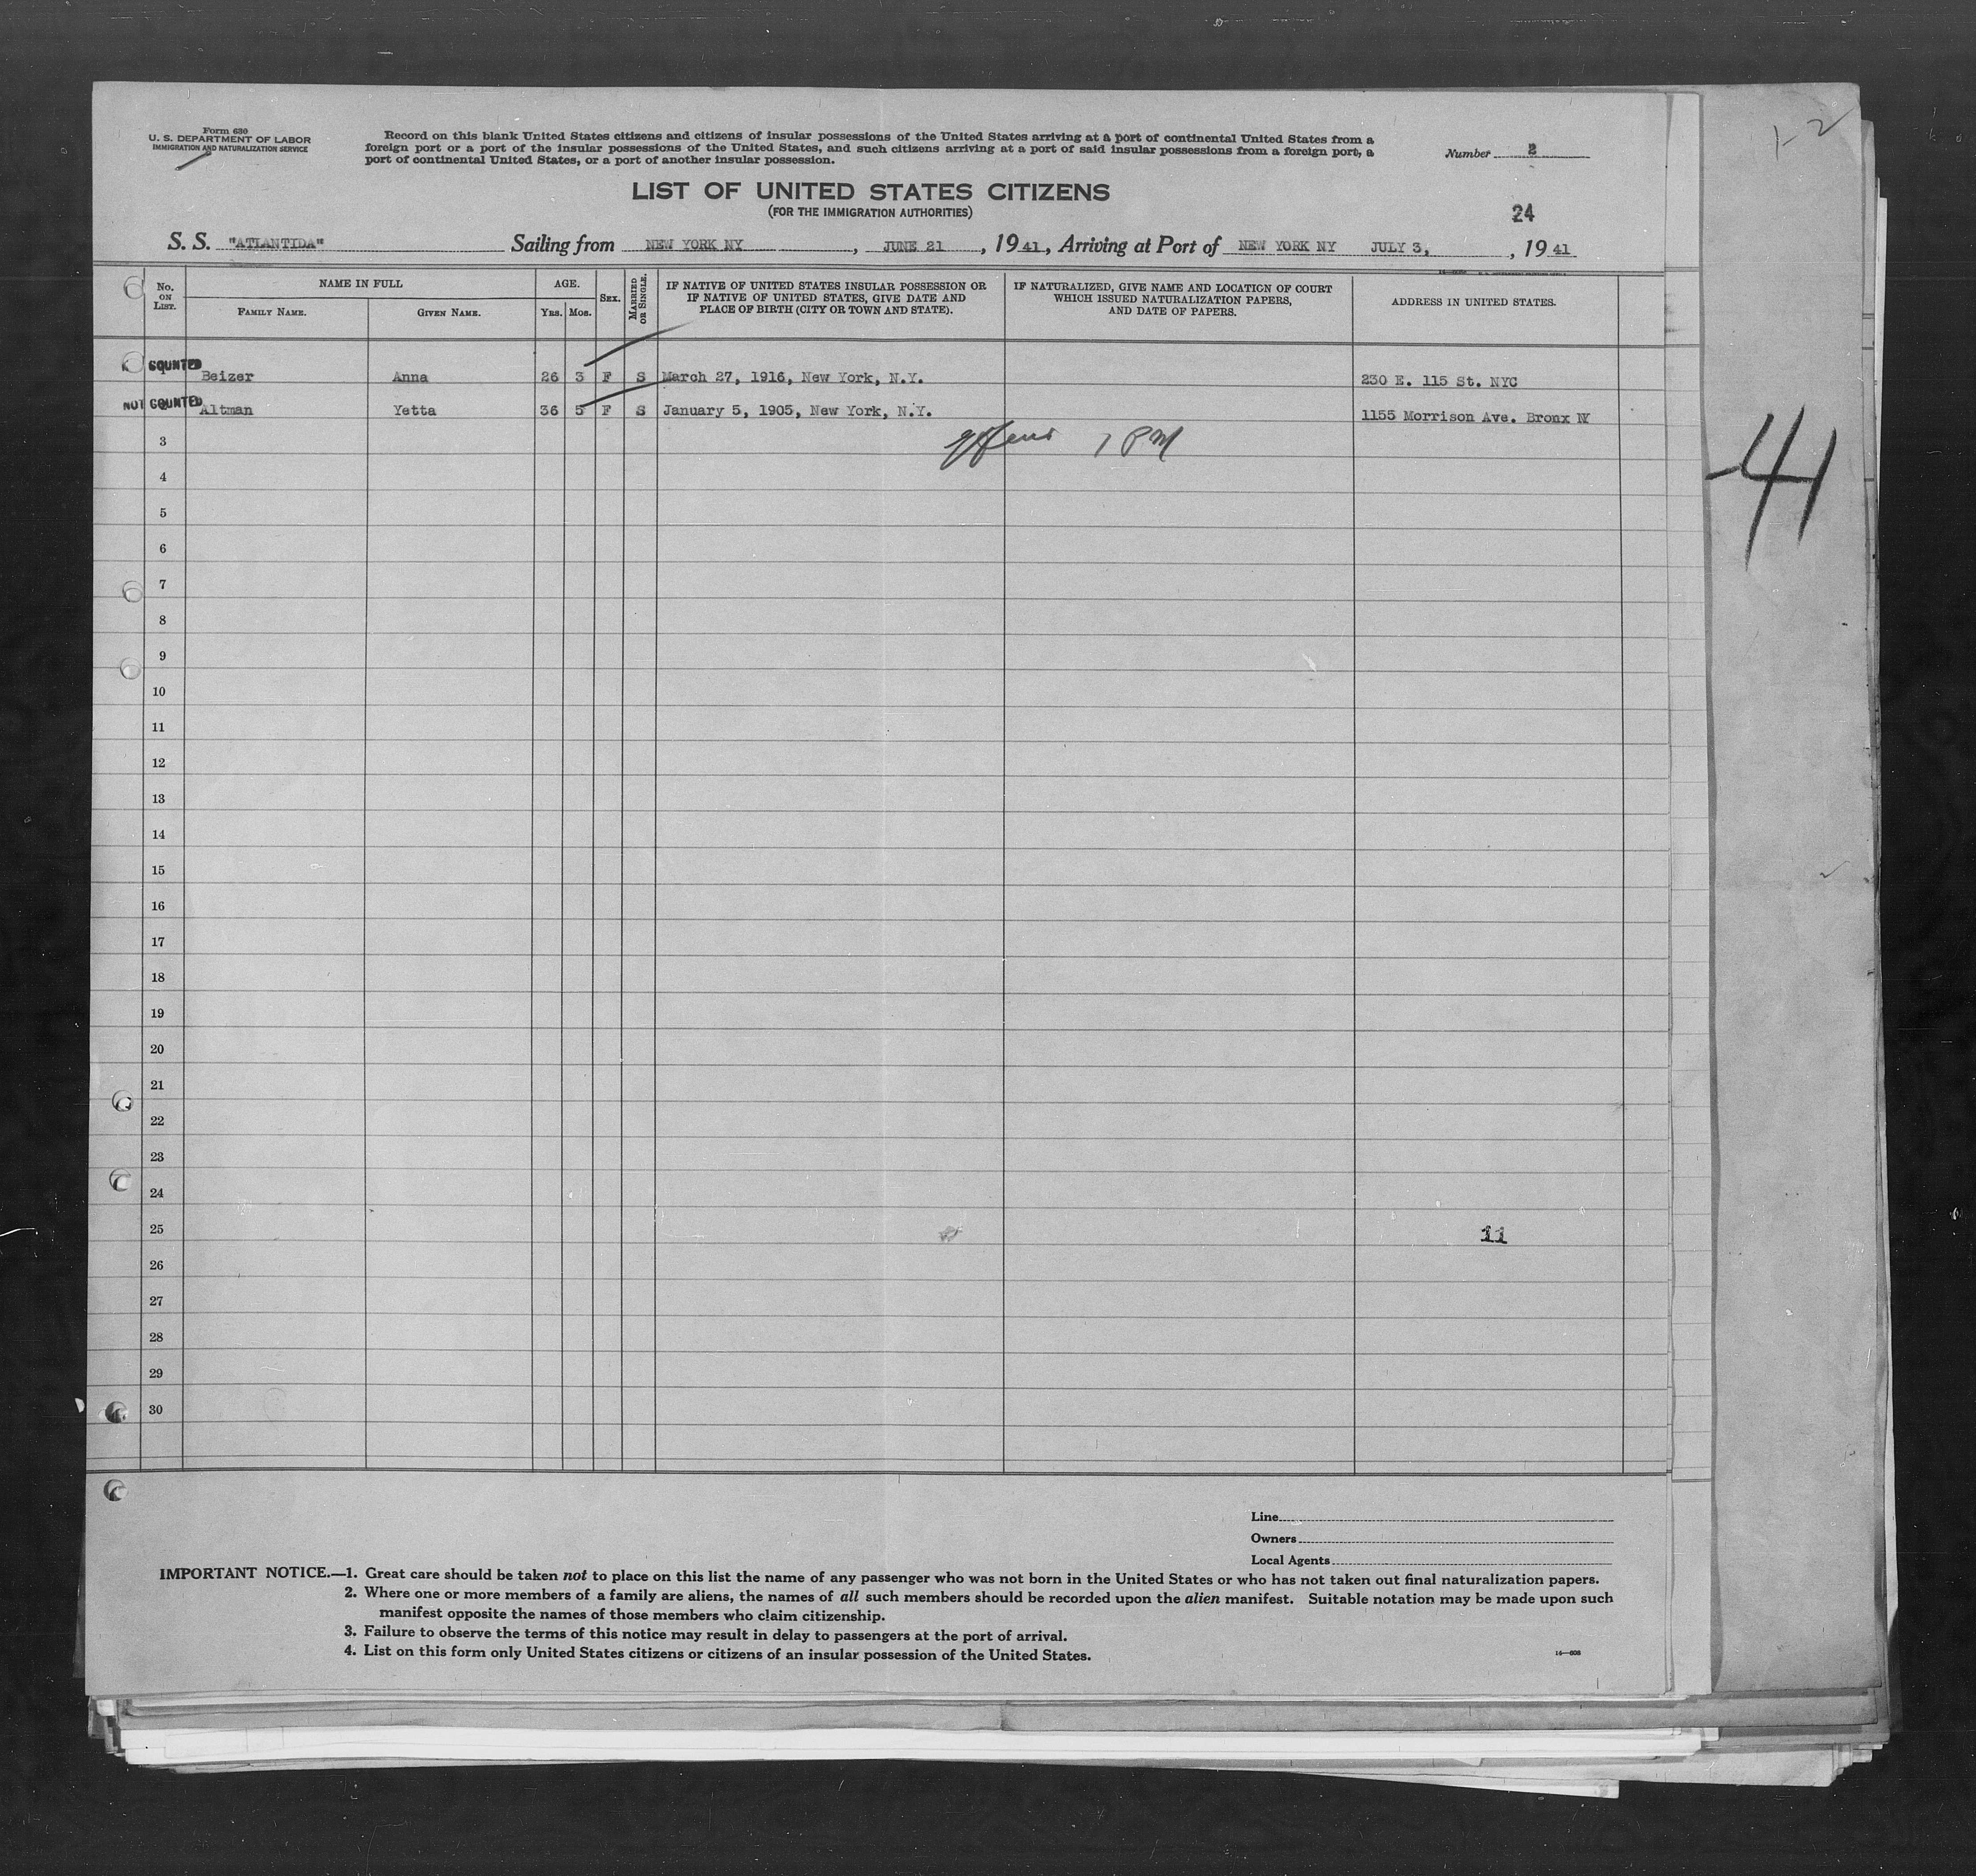 Form 630
U. S. DEPARTMENT OF LABOR
IMMIGRATION AND NATURALIZATION SERVICE
Record on this blank United States citizens and citizens of insular possessions of the United States arriving at a port of continental United States from a
foreign port or a port of the insular possessions of the United States, and such citizens arriving at a port of said insular possessions from a foreign port, a
port of continental United States, or a port of another insular possession.
Number 2
LIST OF UNITED STATES CITIZENS
(FOR THE IMMIGRATION AUTHORITIES)
24
S. S. "ATLANTIDA" Sailing from NEW YORK NY, JUNE 21, 1941, Arriving at Port of NEW YORK NY JULY 3, , 1941
No. ON LIST.
NAME IN FULL
FAMILY NAME. GIVEN NAME.
AGE.
YRS. MOS.
SEX.
MARRIED OR SINGLE.
IF NATIVE OF UNITED STATES INSULAR POSSESSION OR
IF NATIVE OF UNITED STATES, GIVE DATE AND
PLACE OF BIRTH (CITY OR TOWN AND STATE).
IF NATURALIZED, GIVE NAME AND LOCATION OF COURT
WHICH ISSUED NATURALIZATION PAPERS,
AND DATE OF PAPERS.
ADDRESS IN UNITED STATES.
COUNTED
Beizer Anna 26 3 F S March 27, 1916, New York, N.Y. 230 E. 115 St. NYC
NOT COUNTED
Altman Yetta 36 5 F S January 5, 1905, New York, N.Y. 1155 Morrison Ave. Bronx NY
1 PM
3
4
5
6
7
8
9
10
11
12
13
14
15
16
17
18
19
20
21
22
23
24
25 11
26
27
28
29
30
Line
Owners
Local Agents
IMPORTANT NOTICE.—1. Great care should be taken not to place on this list the name of any passenger who was not born in the United States or who has not taken out final naturalization papers.
2. Where one or more members of a family are aliens, the names of all such members should be recorded upon the alien manifest. Suitable notation may be made upon such
manifest opposite the names of those members who claim citizenship.
3. Failure to observe the terms of this notice may result in delay to passengers at the port of arrival.
4. List on this form only United States citizens or citizens of an insular possession of the United States.
14—608
1-2
-41